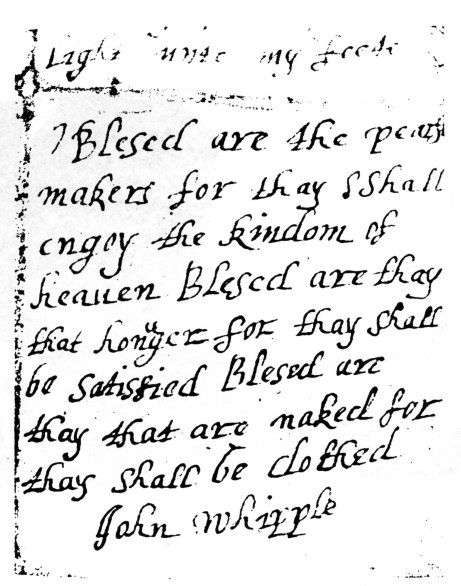 Light unto my feete
Blesed are the peats
makers for thay Shall
engoy the kindom of
heauen Blesed are thay
that honger for thay shall
be satisfied Blesed are
thay that are naked for
thay shall be clothed
John Whipple